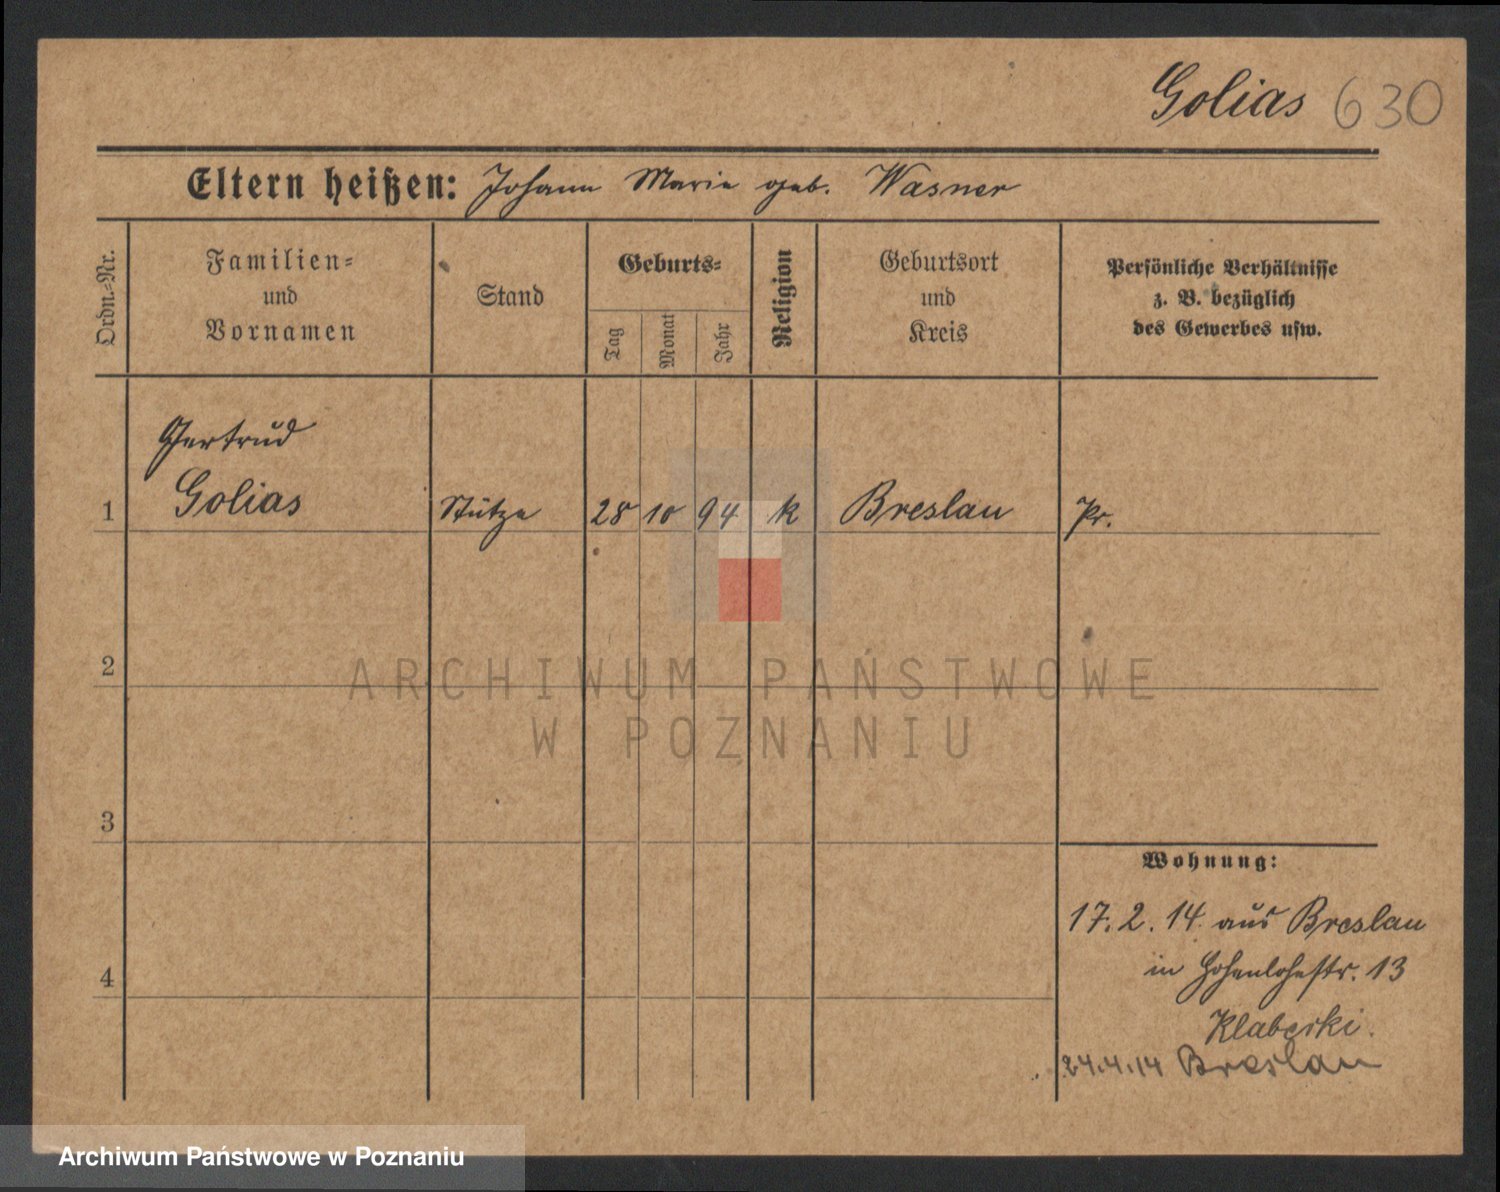 Golias 630
Eltern heißen: Johann Marie geb. Wasner
Ordn.-Nr.
Familien-
und
Vornamen
Stand
Geburts-
Tag
Monat
Jahr
Religion
Geburtsort
und
Kreis
Persönliche Verhältnisse
z. B. bezüglich
des Gewerbes usw.
Gertrud
1 Golias Stütze 28 10 94 k Breslau Pr.
2
ARCHIWUM PAŃSTWOWE
W POZNANIU
3
Wohnung:
17. 2. 14. aus Breslau
4 in Hohenlohestr. 13
Klaberki.
24.4.14 Breslau
Archiwum Państwowe w Poznaniu